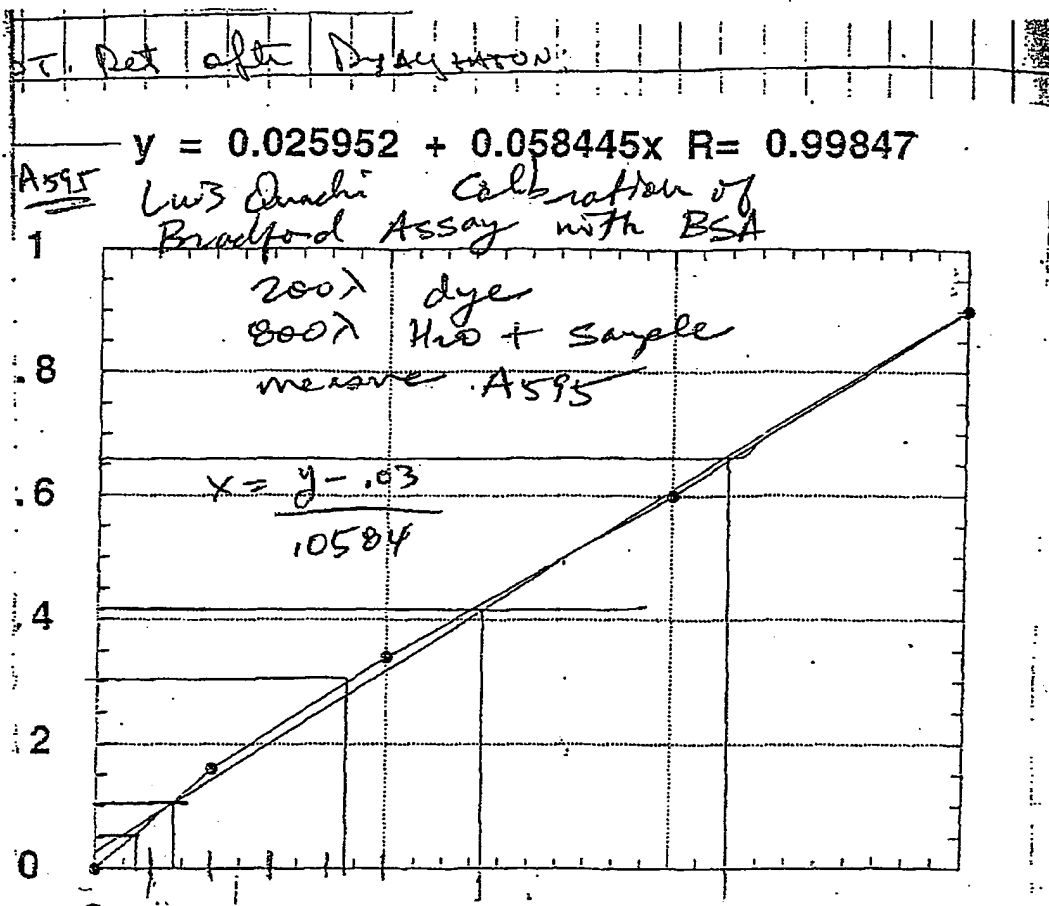 Det after
y = 0.025952 + 0.058445x R= 0.99847
A595
Calibration of
Bradford Assay with BSA
1
200λ dye
800λ H2O + sample
.8
measure A595
x = y - .03
.0584
.6
.4
.2
0